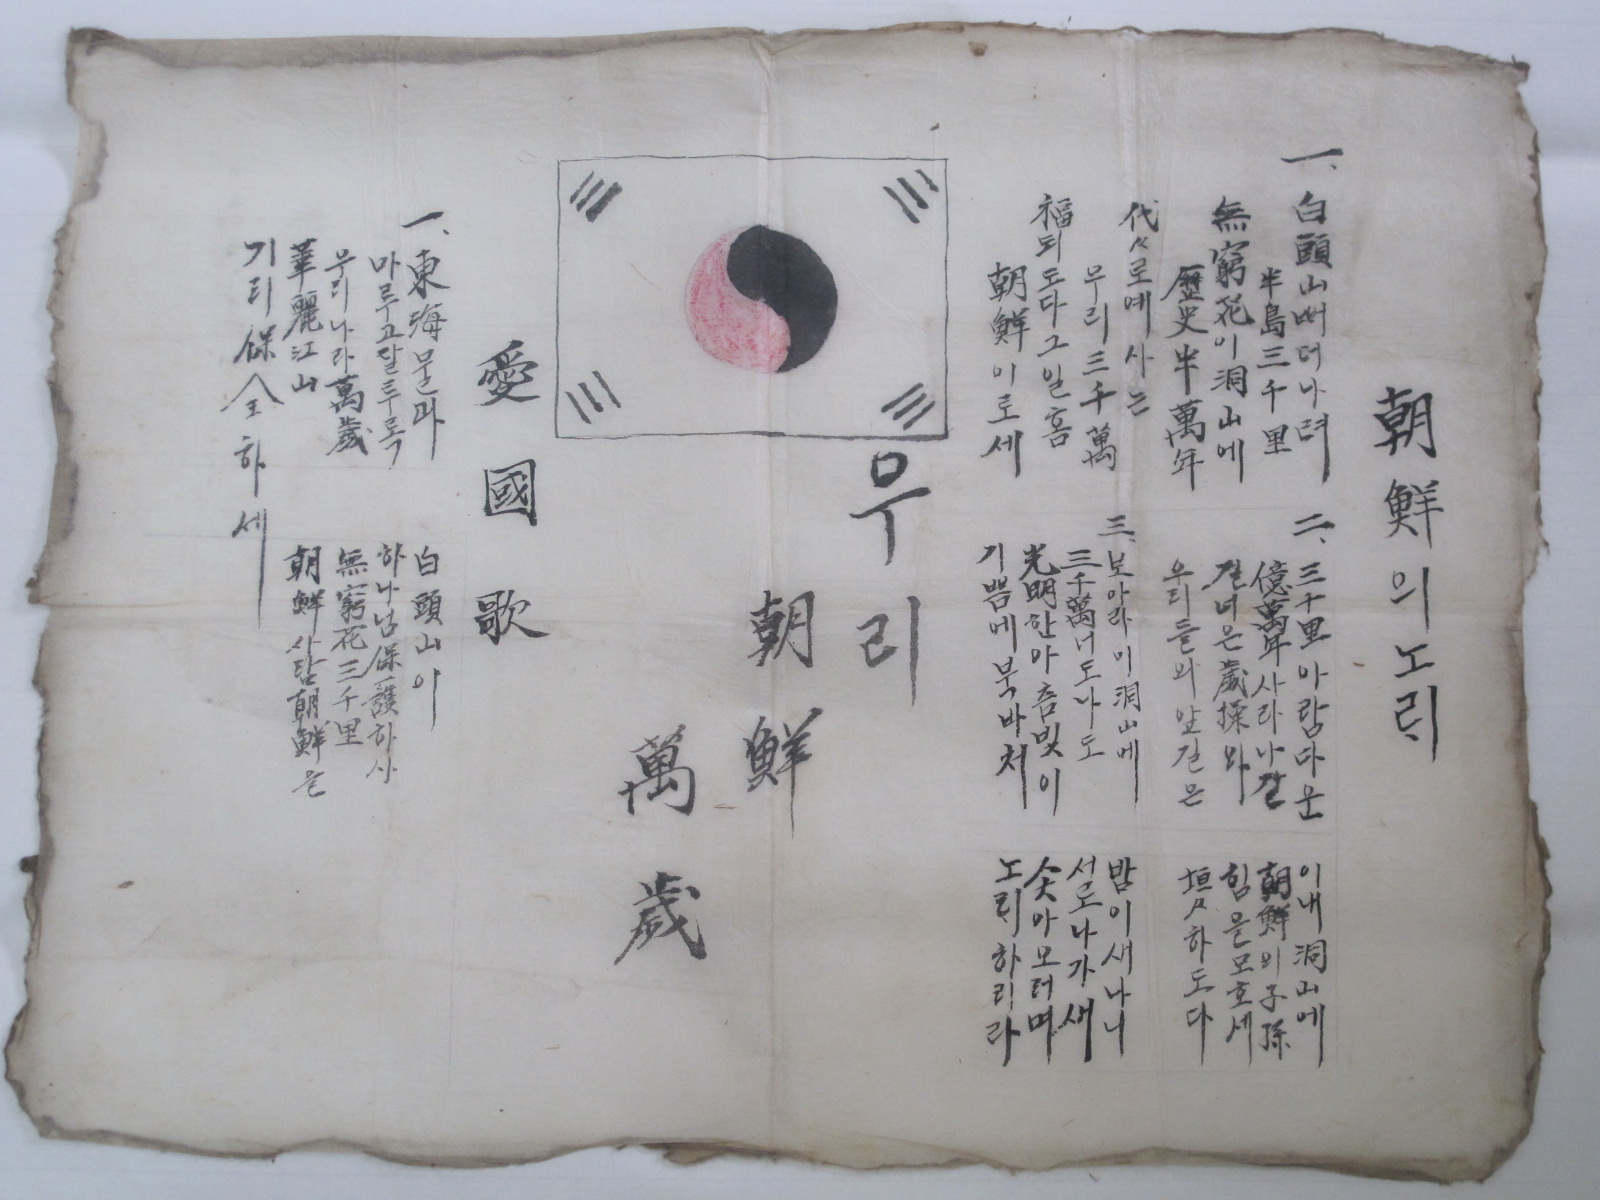 朝鮮의노리
一、白頭山뻐더나려
半島三千里
無窮花이洞山에
歷史半萬年
代々로예사는
우리三千萬
福되도다그일홈
朝鮮이로세
二、三千里아람다운
이내洞山에
億萬年사라나갈
朝鮮의子孫
길너은歲揉와
힘을모호세
우리들의앞길은
垣々하도다
三、보아라이洞山에
밤이새나니
三千萬너도나도
서로나가새
光明한아츰빛이
솟아모터며
기쁨에북바처
노리하리라
우리
朝鮮
萬歲
愛國歌
一、東海물과
白頭山이
마루고달투록
하나님保護하사
우리나라萬歲
無窮花三千里
華麗江山
朝鮮사람朝鮮은
기리保全하세